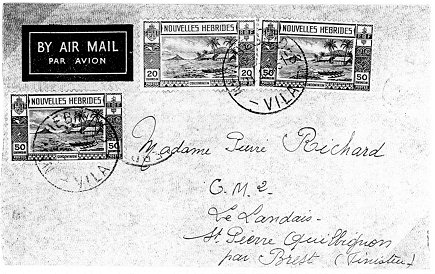 BY AIR MAIL
PAR AVION
NOUVELLES HEBRIDES
20 20
NOUVELLES HEBRIDES
50 50
VILA
NOUVELLES HEBRIDES
50 50
VILA
Madame Pierre Richard
C.M.2-
Le Landais-
St Pierre Quilbignon
par Brest (Finistère)